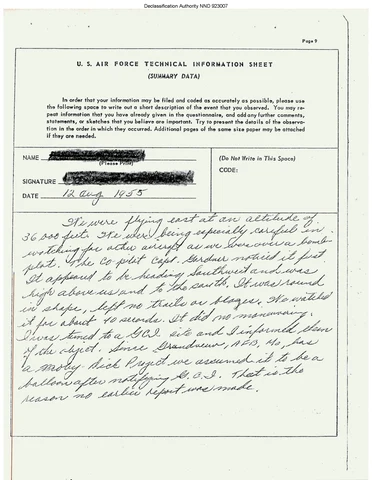 Declassification Authority NND 923007
Page 9
U. S. AIR FORCE TECHNICAL INFORMATION SHEET
(SUMMARY DATA)
In order that your information may be filed and coded as accurately as possible, please use
the following space to write out a short description of the event that you observed. You may re-
peat information that you have already given in the questionnaire, and add any further comments,
statements, or sketches that you believe are important. Try to present the details of the observa-
tion in the order in which they occurred. Additional pages of the same size paper may be attached
if they are needed.
NAME
(Please Print)
(Do Not Write in This Space)
CODE:
SIGNATURE
DATE 12 Aug 1955
We were flying east at an altitude of
36,000 feet. We were being especially careful in
watching for other aircraft as we were over a bomb
plot. The Co-pilot Capt. Gardner noticed it first
It appeared to be heading Southwest and was
high above us and to the south. It was round
in shape, left no trails or . We watched
it for about 40 seconds. It did no .
I was tuned to a GCI site and I informed them
of the object. Since Grandview, AFB, Mo, has
a Moby Dick Project we assumed it to be a
balloon after notifying G.C.I. That is the
reason no earlier report was made.